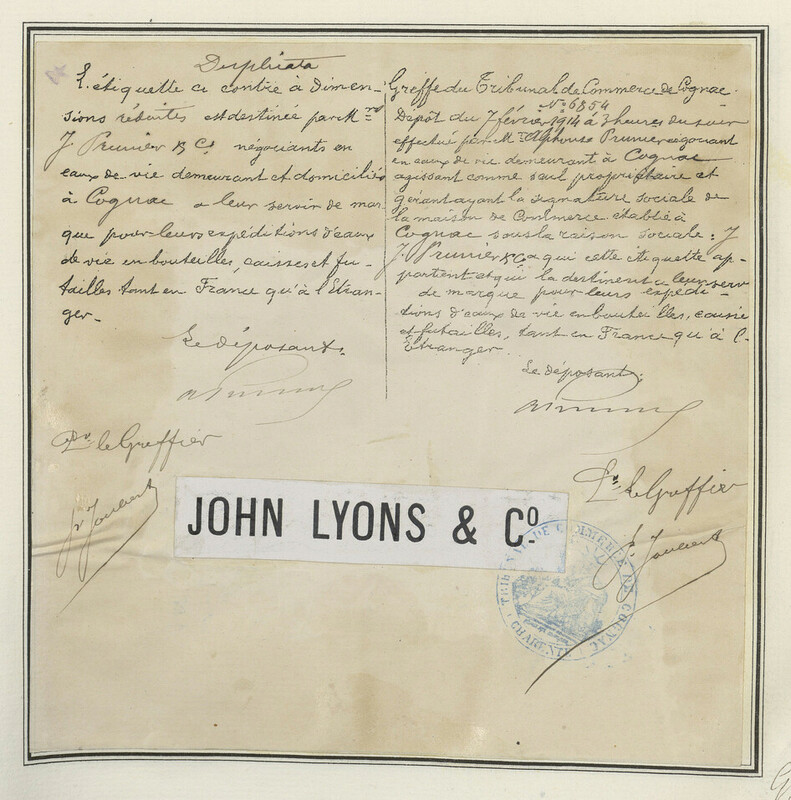 Duplicata
L'étiquette ci contre à dimen-
sions réduites est destinée par Mrs
J Prunier & Co négociants en
eaux-de-vie demeurant et domiciliés
à Cognac a leur servir de mar
que pour leurs expéditions d'eaux
de vie en bouteilles, caisses et fu-
tailles tant en France qu'à l'Etran-
ger_
Le déposant.
APrunier
Pr le Greffier
Joubert
Greffe du Tribunal de Commerce de Cognac
No 6854
Dépôt du 7 février 1914 à 3 heures du soir
effectué par Mr Alphonse Prunier négociant
en eaux de vie demeurant à Cognac
agissant comme seul propriétaire et
gérant ayant la signature sociale de
la maison de Commerce établie à
Cognac sous la raison sociale : J
J. Prunier & Co a qui cette étiquette ap-
partient et qui la destinent a leur serv
de marque pour leurs expédi-
tions d'eaux de vie en bouteilles, caisse
et futailles, tant en France qu'à l'
Etranger
Le déposant.
APrunier
Pr le Greffier
Joubert
JOHN LYONS & Co.
TRIBUNAL DE COMMERCE DE COGNAC
CHARENTE